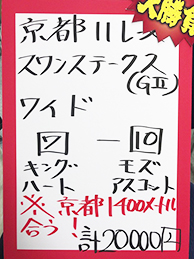 大勝負
京都11レース
スワンステークス
(GⅡ)
ワイド
7 — 10
キング モズ
ハート アスコット
※京都1400メートル
合う!
計20000円